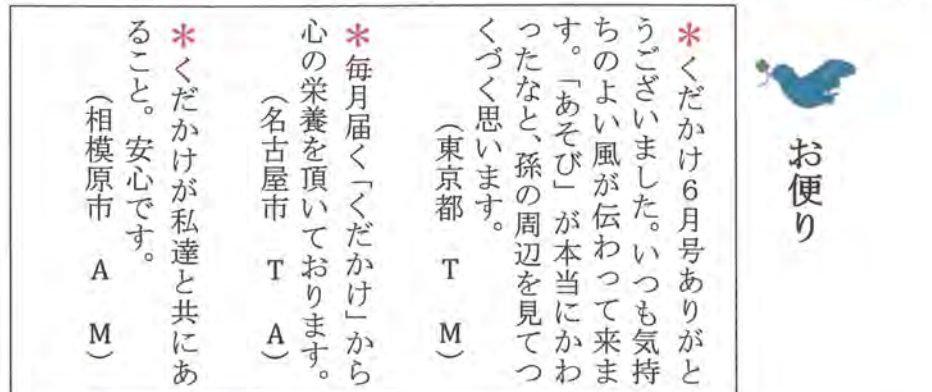 お便り
＊くだかけ6月号ありがと
うございました。いつも気持
ちのよい風が伝わって来ま
す。「あそび」が本当にかわ
ったなと、孫の周辺を見てつ
くづく思います。
（東京都　T　M）
＊毎月届く「くだかけ」から
心の栄養を頂いております。
（名古屋市　T　A）
＊くだかけが私達と共にあ
ること。安心です。
（相模原市　A　M）